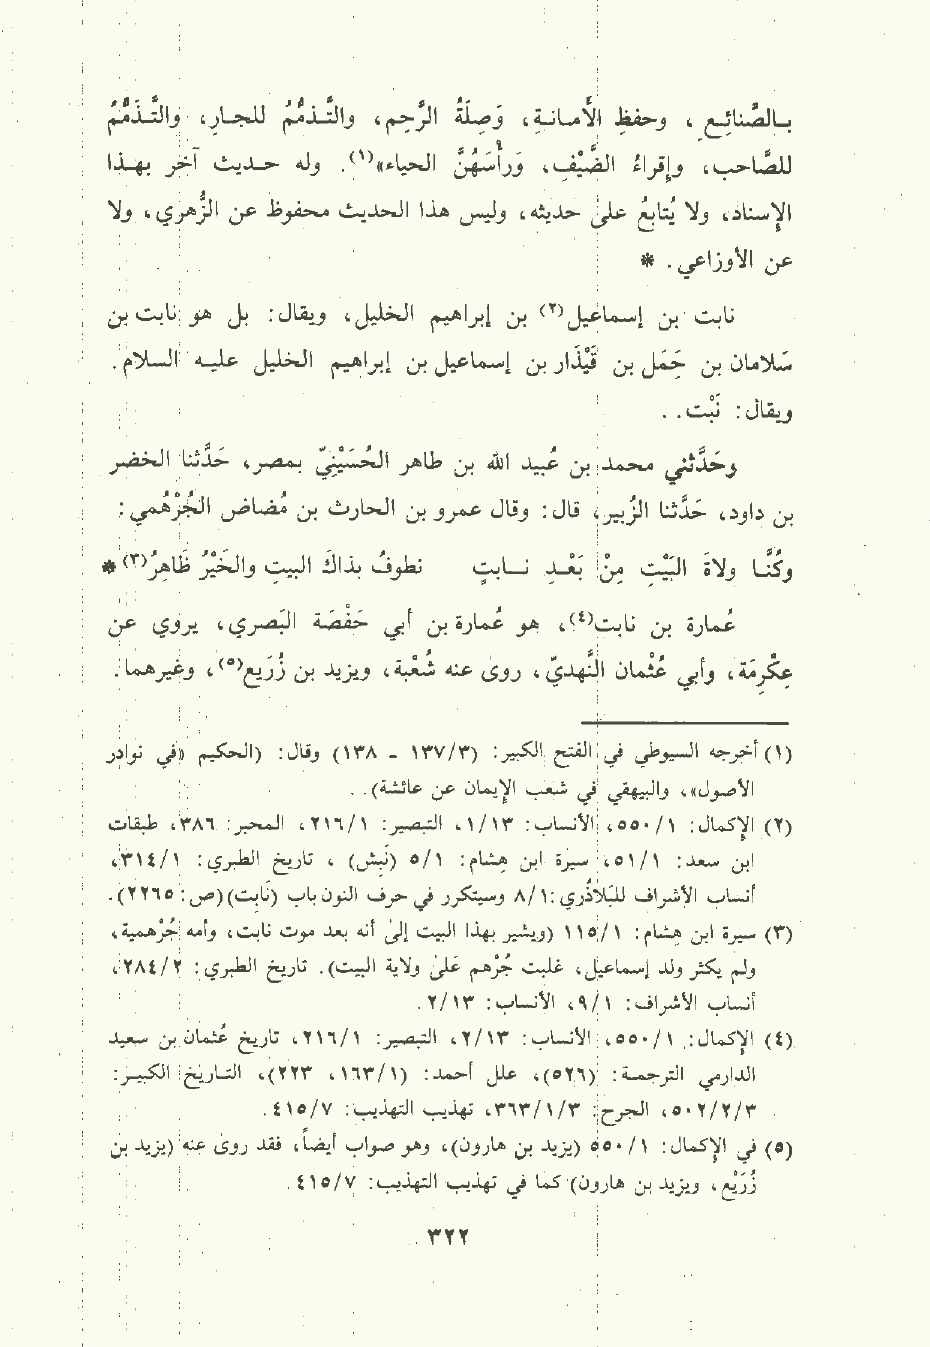 بالصَّنائِع ، وحفظِ الأمانةِ، وَصِلَةُ الرَّحِم، والتَّذمُّمُ للجارِ، والتَّذمُّمُ
للصاحب، وإقراءُ الضَّيْفِ، وَرأسَهُنَّ الحياء»(١). وله حديث آخر بهذا
الإسناد، ولا يُتابعُ على حديثه، وليس هذا الحديث محفوظ عن الزُّهري، ولا
عن الأوزاعي. *
نابت بن إسماعيل(٢) بن إبراهيم الخليل، ويقال: بل هو نابت بن
سَلامان بن حَمَل بن قَيْذَار بن إسماعيل بن إبراهيم الخليل عليه السلام.
ويقال: نَبْت. .
وحَدَّثني محمد بن عُبيد الله بن طاهر الحُسَيْنِيّ بمصر، حَدَّثنا الخضر
بن داود، حَدَّثنا الزُّبير، قال: وقال عمرو بن الحارث بن مُضاض الجُرْهُمي:
وكُنَّا ولاةَ البَيْتِ مِنْ بَعْدِ نابتٍ نطوفُ بذاكَ البيتِ والخَيْرُ ظَاهِرُ(٣)*
عُمارة بن نابت(٤)، هو عُمارة بن أبي حَفْصَة البَصري، يروي عن
عِكْرِمَة، وأبي عُثْمان النَّهديّ، روى عنه شُعْبة، ويزيد بن زُرَيع(٥)، وغيرهما.
(١) أخرجه السيوطي في الفتح الكبير: (١٣٧/٣ - ١٣٨) وقال: (الحكيم «في نوادر
الأصول»، والبيهقي في شعب الإيمان عن عائشة). .
(٢) الإكمال: ٥٥٠/١، الأنساب: ١/١٣، التبصير: ٢١٦/١، المحبر: ٣٨٦، طبقات
ابن سعد: ٥١/١، سيرة ابن هِشام: ٥/١ (نَبِش) ، تاريخ الطبري: ٣١٤/١،
أنساب الأشراف للبَلاذُري:٨/١ وسيتكرر في حرف النون باب (نَابِت)(ص:٢٢٦٥).
(٣) سيرة ابن هِشام: ١١٥/١ (ويشير بهذا البيت إلى أنه بعد موت نابت، وأمه جُرْهمية،
ولم يكثر ولد إسماعيل، غلبت جُرْهم عَلى ولاية البيت). تاريخ الطبري: ٢٨٤/٢،
أنساب الأشراف: ٩/١، الأنساب: ٢/١٣.
(٤) الإكمال: ٥٥٠/١، الأنساب: ٢/١٣، التبصير: ٢١٦/١، تاريخ عُثمان بن سعيد
الدارمي الترجمة: (٥٢٦)، علل أحمد: (١٦٣/١، ٢٢٣)، التاريخ الكبير:
٥٠٢/٢/٣، الجرح: ٣٦٣/١/٣، تهذيب التهذيب: ٤١٥/٧.
(٥) في الإكمال: ٥٥٠/١ (يزيد بن هارون)، وهو صواب أيضاً، فقد روى عنه (يزيد بن
زُرَيْع، ويزيد بن هارون) كما في تهذيب التهذيب: ٤١٥/٧.
٣٢٢